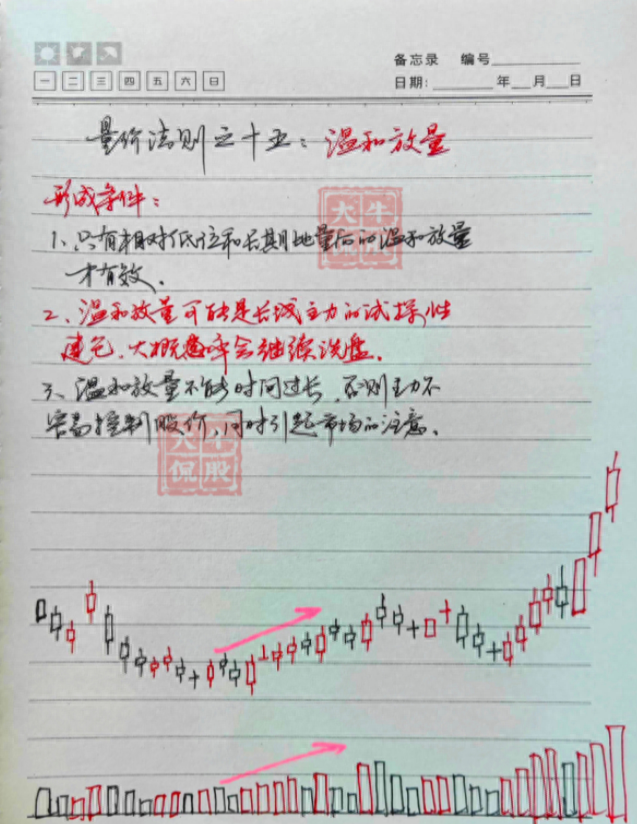 备忘录 编号
一 二 三 四 五 六 日
日期: 年 月 日
量价法则之十五：温和放量
形成条件：
1、只有相对低位和长期地量后的温和放量
才有效。
2、温和放量可能是长线主力的试探性
建仓、大概率会继续洗盘。
3、温和放量不能时间过长，否则主力不
容易控制股价，同时引起市场的注意。
大牛
侃股
大牛
侃股